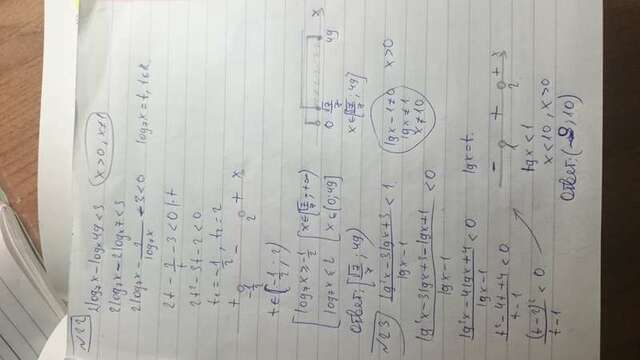 №22
2log₇x - logₓ49 < 3    x>0, x≠1
2log₇x - 2logₓ7 < 3
2log₇x - 2/log₇x - 3 < 0    log₇x = t, t∈R
2t - 2/t - 3 < 0 | · t
2t² - 3t - 2 < 0
t₁ = -1/2, t₂ = 2
+ - + x
-1/2 2
t ∈ (-1/2; 2)
[ log₇x ≥ -1/2    [ x ∈ [√7/7; +∞)
log₇x ≤ 2    x ∈ (0; 49]
0 √7/7 49 x
x ∈ [√7/7; 49]
Ответ: [√7/7; 49)
№23    (lg²x - 3lgx + 3)/(lgx - 1) < 1    lgx - 1 ≠ 0    x>0
lgx ≠ 1
x ≠ 10
(lg²x - 3lgx + 3 - lgx + 1)/(lgx - 1) < 0
(lg²x - 4lgx + 4)/(lgx - 1) < 0    lgx = t.
(t² - 4t + 4)/(t - 1) < 0
- + +
1 2
(t - 2)²/(t - 1) < 0
lgx < 1
x < 10, x > 0
Ответ: (0; 10)